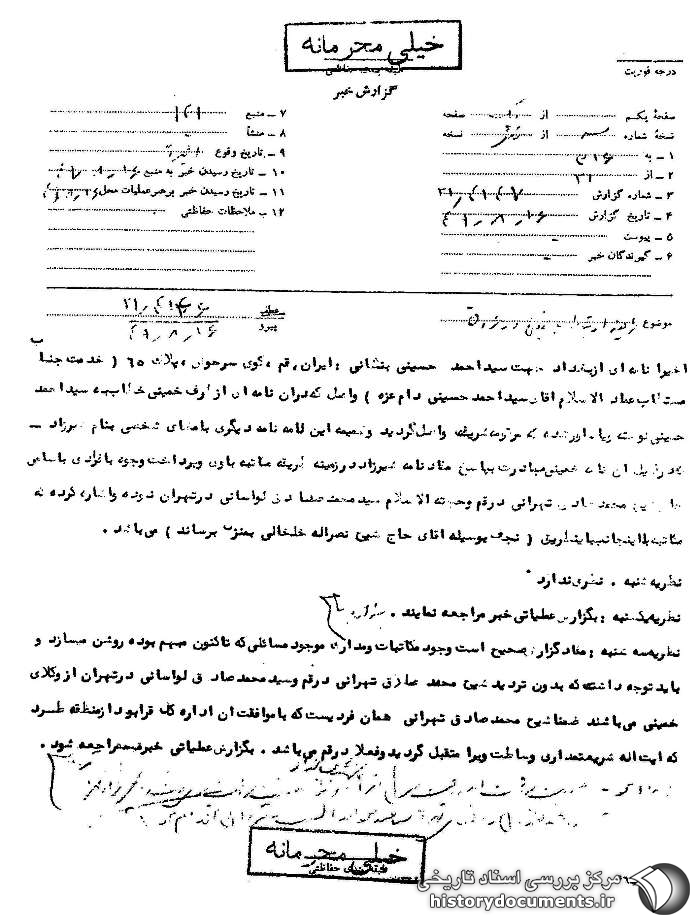 خیلی محرمانه
طبقه‌بندی حفاظتی
گزارش خبر
درجه فوریت
صفحهٔ یکم از یک صفحه
نسخهٔ شماره از نسخه
۱ ـ به ۳۱۶
۲ ـ از ۲۱
۳ ـ شماره گزارش
۴ ـ تاریخ گزارش ۴۹٫۸٫۱۶
۵ ـ پیوست -
۶ ـ گیرندگان خبر -
۷ ـ منبع
۸ ـ منشأ
۹ ـ تاریخ وقوع اخیرا
۱۰ ـ تاریخ رسیدن خبر به منبع
۱۱ ـ تاریخ رسیدن خبر برهبر عملیات محل
۱۲ ـ ملاحظات حفاظتی
موضوع
عطف
پیرو ۴۹٫۸٫۱۶
اخیرا نامه ای از بغداد جهت سید احمد حسینی بنشانی : ایران ، قم ، کوی سرحوض ، پلاک ۶۵ ( خدمت جناب
مستطاب عماد الاسلام اقای سید احمد حسینی دام عزه ) واصل که در ان نامه ای از طرف خمینی خطاب به سید احمد
حسینی نوشته و یاد اور شده که مرقومه شریفه واصل گردید و ضمیمه این نامه نامه دیگری بامضای شخصی بنام شیرزاد ـ
که در ذیل ان نامه خمینی مبادرت بپاسخ مفاد نامه شیرزاد در زمینه طریقه مکاتبه باوی و پرداخت وجوه بافرادی باسامی
شیخ محمد صادق تهرانی در قم و حجته الاسلام سید محمد صادق لواسانی در تهران نموده و اشاره کرده که
مکاتبه با اینجانب باینطریق ( نجف بوسیله اقای حاج شیخ نصراله خلخالی بمنزل برساند ) می باشد .
نظریه شنبه . نظری ندارد .
نظریه یکشنبه : بگزارش عملیاتی خبر مراجعه نمایند .
نظریه سه شنبه : مفاد گزارش صحیح است وجود مکاتبات و مدارک موجود مسائلی که تاکنون مبهم بوده روشن میسازد و
باید توجه داشت که بدون تردید شیخ محمد صادق تهرانی در قم و سید محمد صادق لواسانی در تهران از وکلای
خمینی می باشند ضمنا شیخ محمد صادق تهرانی همان فردیست که با موافقت ان اداره کل قرار بود از منطقه طرد
که ایت اله شریعتمداری وساطت ویرا متقبل گردید و فعلا در قم می باشد . بگزارش عملیاتی خبر مراجعه شود .
خیلی محرمانه
طبقه‌بندی حفاظتی
مرکز بررسی اسناد تاریخی
historydocuments.ir